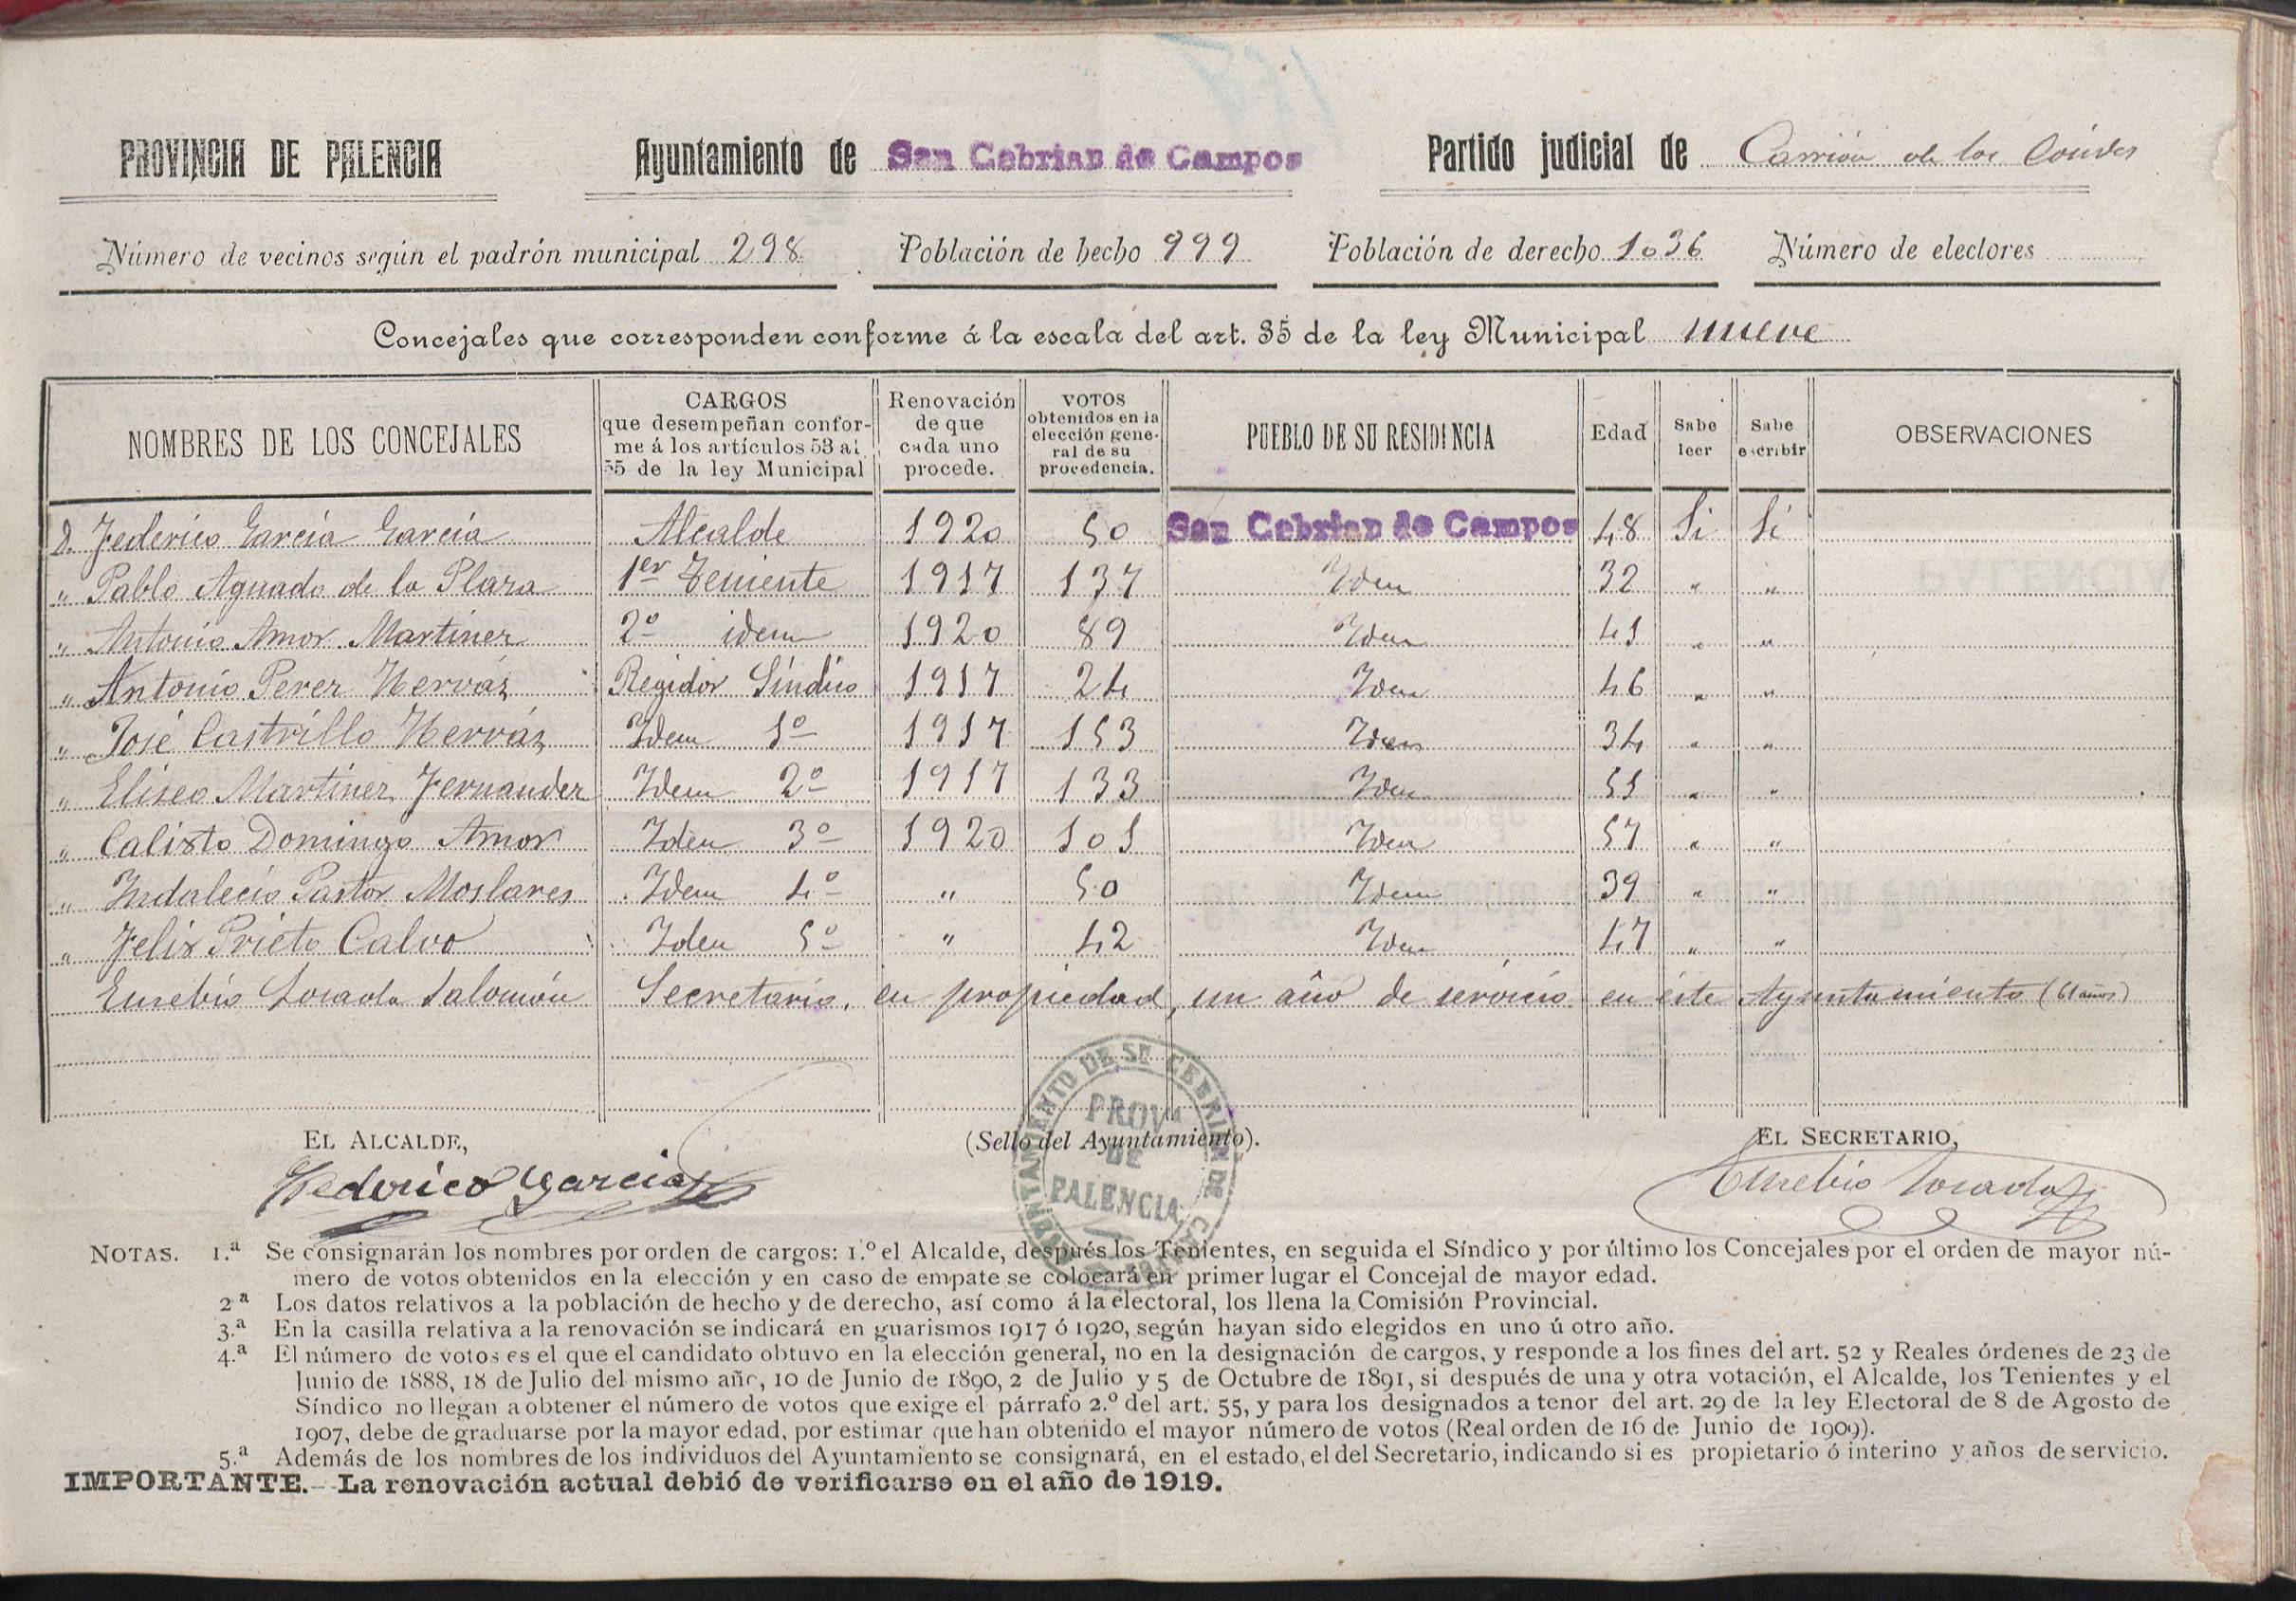 PROVINCIA DE PALENCIA Ayuntamiento de San Cebrian de Campos Partido judicial de Carrión de los Cóndes
Número de vecinos según el padrón municipal 298 Población de hecho 999 Población de derecho 1036 Número de electores
Concejales que corresponden conforme á la escala del art. 35 de la ley Municipal nueve
NOMBRES DE LOS CONCEJALES CARGOS que desempeñan conforme á los artículos 53 al 55 de la ley Municipal Renovación de que cada uno procede. VOTOS obtenidos en la elección general de su procedencia. PUEBLO DE SU RESIDENCIA Edad Sabe leer Sabe escribir OBSERVACIONES
D. Federico García García Alcalde 1920 50 San Cebrian de Campos 48 Si Si
" Pablo Aguado de la Plaza 1er Teniente 1917 137 Idem 32 " "
" Antonio Amor Martinez 2º idem 1920 89 Idem 41 " "
" Antonio Perez Hervás Regidor Síndico 1917 24 Idem 46 " "
" José Castrillo Hervás Idem 1º 1917 153 Idem 34 " "
" Eliseo Martinez Fernandez Idem 2º 1917 133 Idem 51 " "
" Calixto Domingo Amor Idem 3º 1920 101 Idem 57 " "
" Indalecio Pastor Moslares Idem 4º " 50 Idem 39 " "
" Felix Prieto Calvo Idem 5º " 42 Idem 47 " "
Eusebio Losada Salomón Secretario, en propiedad, un año de servicio en éste Ayuntamiento (61 años)
EL ALCALDE, (Sello del Ayuntamiento). EL SECRETARIO,
Federico Garcia Eusebio Losada
AYUNTAMIENTO DE Sn CEBRIAN DE CAMPOS
PROVa
DE
PALENCIA
NOTAS. 1.ª Se consignarán los nombres por orden de cargos: 1.º el Alcalde, después los Tenientes, en seguida el Síndico y por último los Concejales por el orden de mayor nú-
mero de votos obtenidos en la elección y en caso de empate se colocará en primer lugar el Concejal de mayor edad.
2ª Los datos relativos a la población de hecho y de derecho, así como á la electoral, los llena la Comisión Provincial.
3.ª En la casilla relativa a la renovación se indicará en guarismos 1917 ó 1920, según hayan sido elegidos en uno ú otro año.
4.ª El número de votos es el que el candidato obtuvo en la elección general, no en la designación de cargos, y responde a los fines del art. 52 y Reales órdenes de 23 de
Junio de 1888, 18 de Julio del mismo año, 10 de Junio de 1890, 2 de Julio y 5 de Octubre de 1891, si después de una y otra votación, el Alcalde, los Tenientes y el
Síndico no llegan a obtener el número de votos que exige el párrafo 2.º del art. 55, y para los designados a tenor del art. 29 de la ley Electoral de 8 de Agosto de
1907, debe de graduarse por la mayor edad, por estimar que han obtenido el mayor número de votos (Real orden de 16 de Junio de 1909).
5.ª Además de los nombres de los individuos del Ayuntamiento se consignará, en el estado, el del Secretario, indicando si es propietario ó interino y años de servicio.
IMPORTANTE.-- La renovación actual debió de verificarse en el año de 1919.